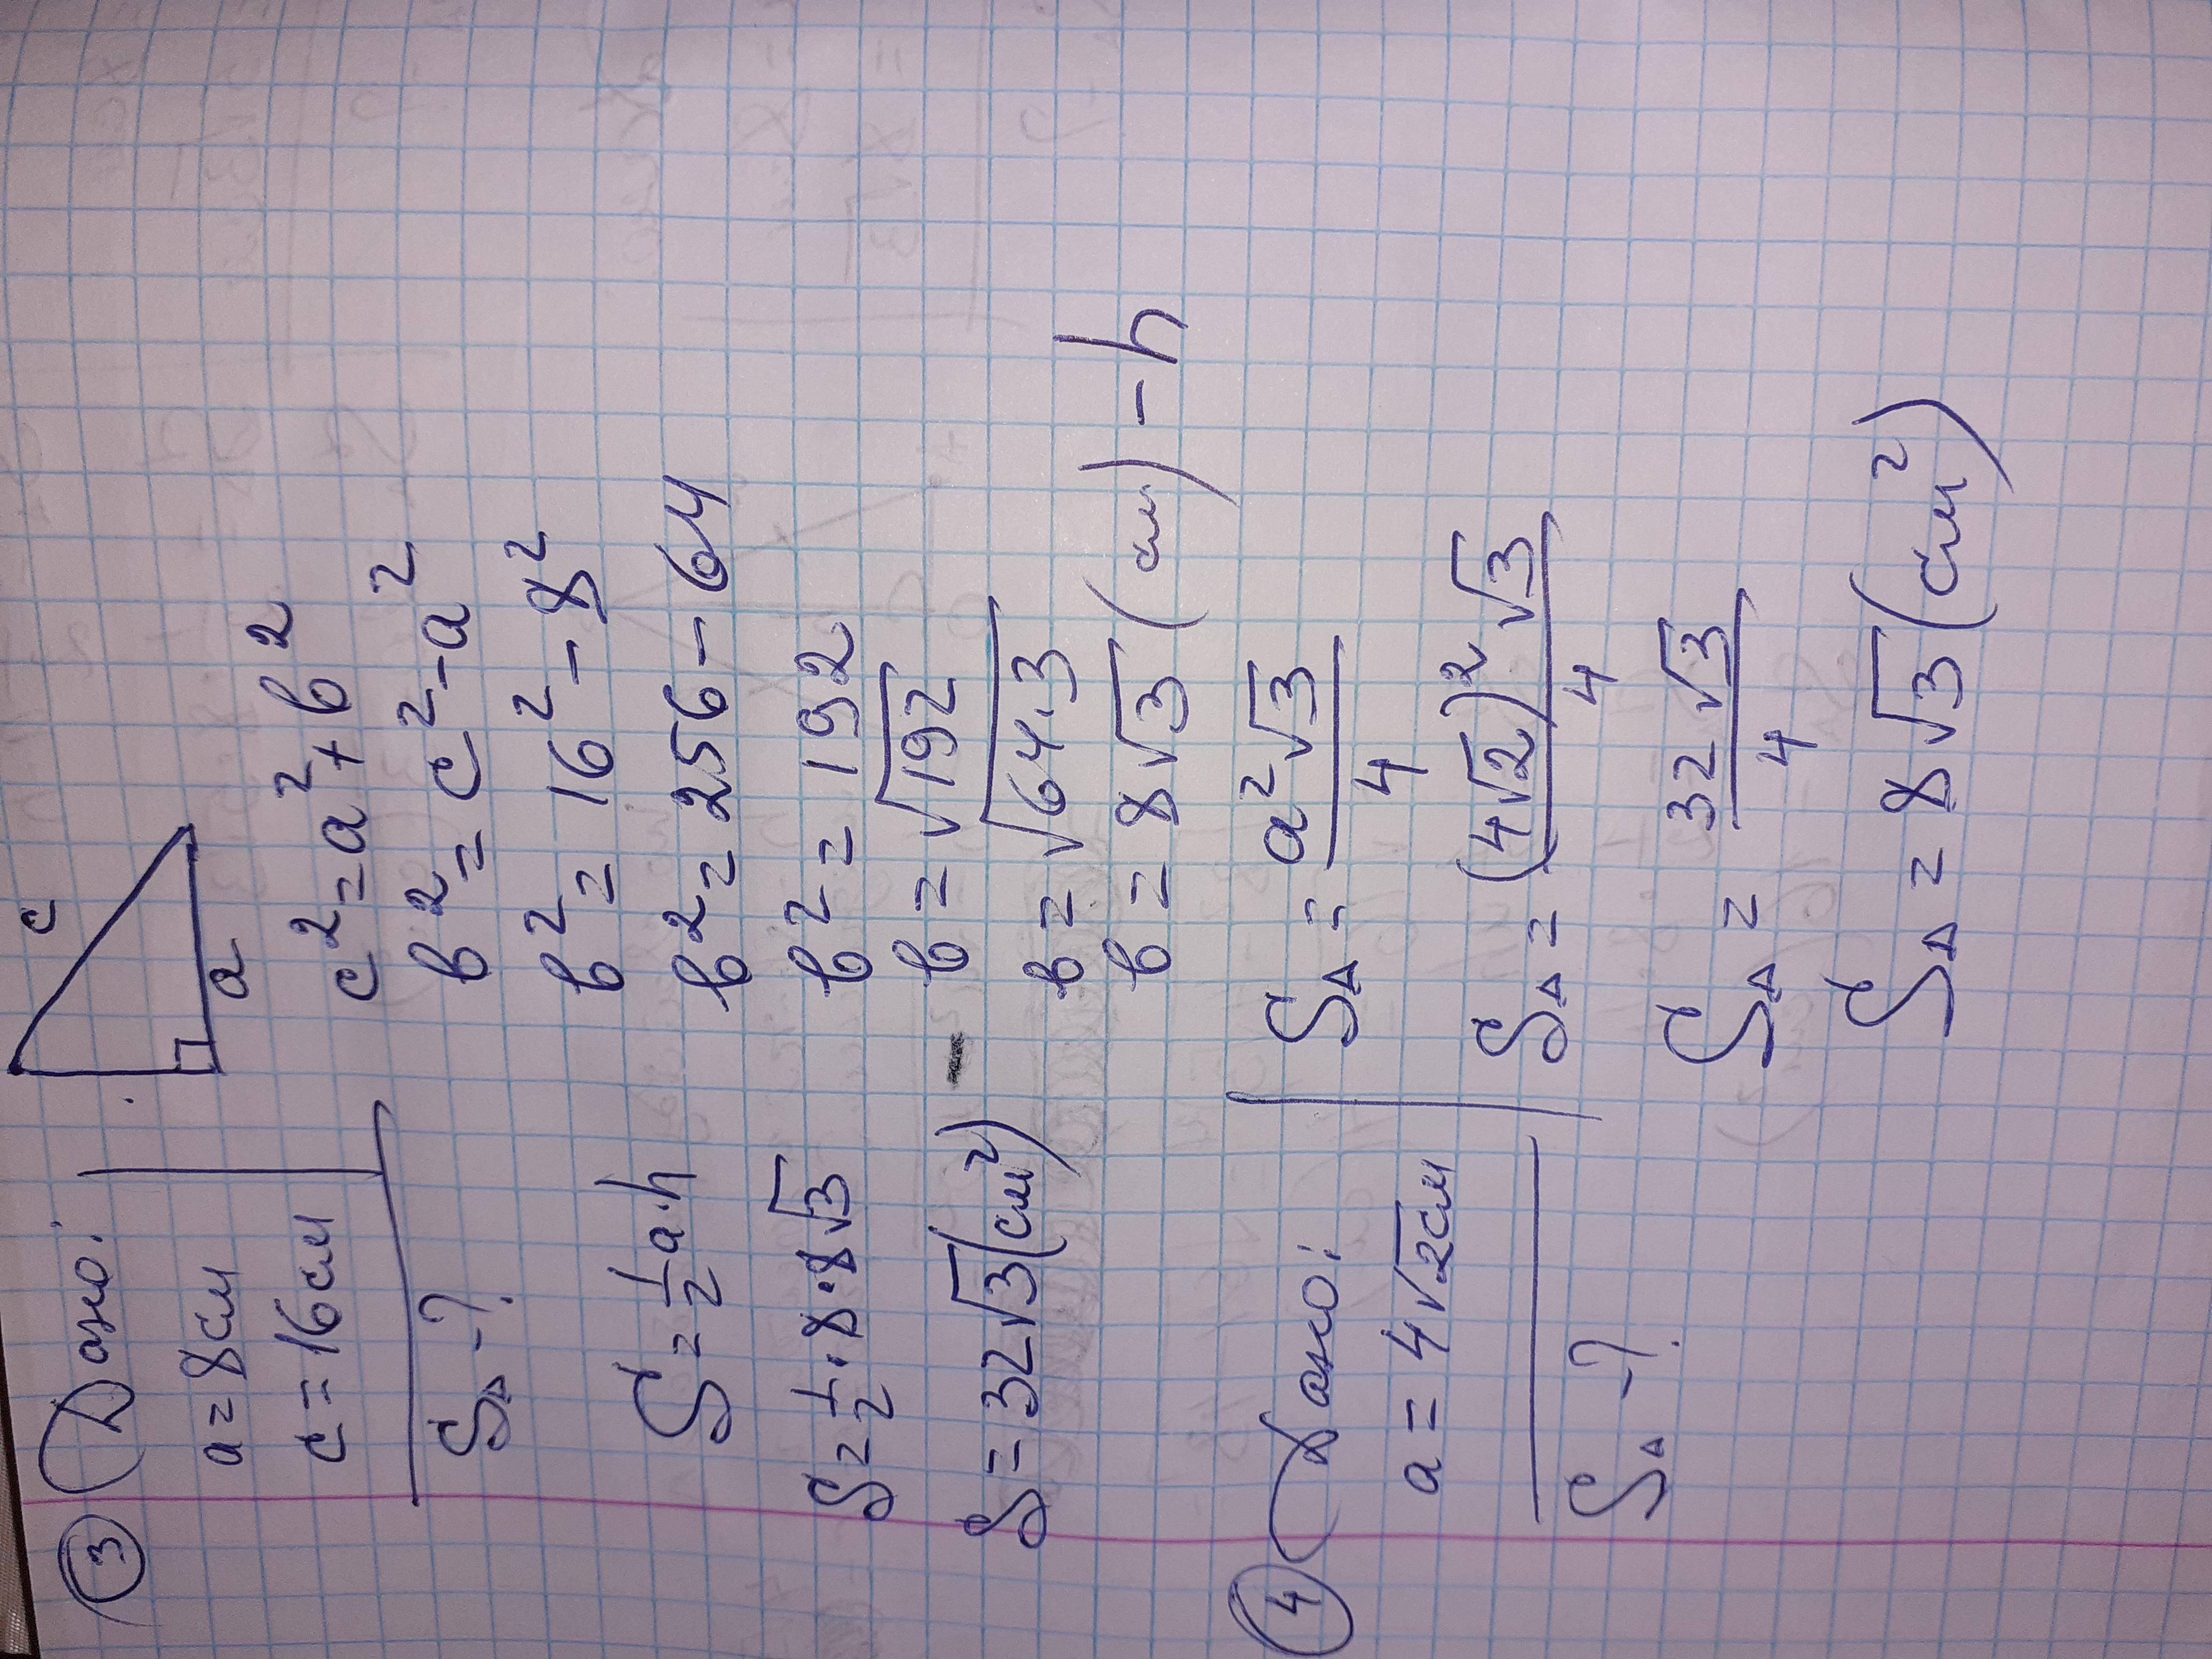 ③ Дано:
a = 8см
c = 16см
S△ - ?
c
a
c² = a² + b²
b² = c² - a²
b² = 16² - 8²
b² = 256 - 64
b² = 192
b = √192
b = √64·3
b = 8√3 (см) - h
S = 1/2 a·h
S = 1/2 · 8 · 8√3
S = 32√3 (см²)
④ Дано:
a = 4√2см
S△ - ?
S△ = a²√3/4
S△ = (4√2)²√3/4
S△ = 32√3/4
S△ = 8√3 (см²)